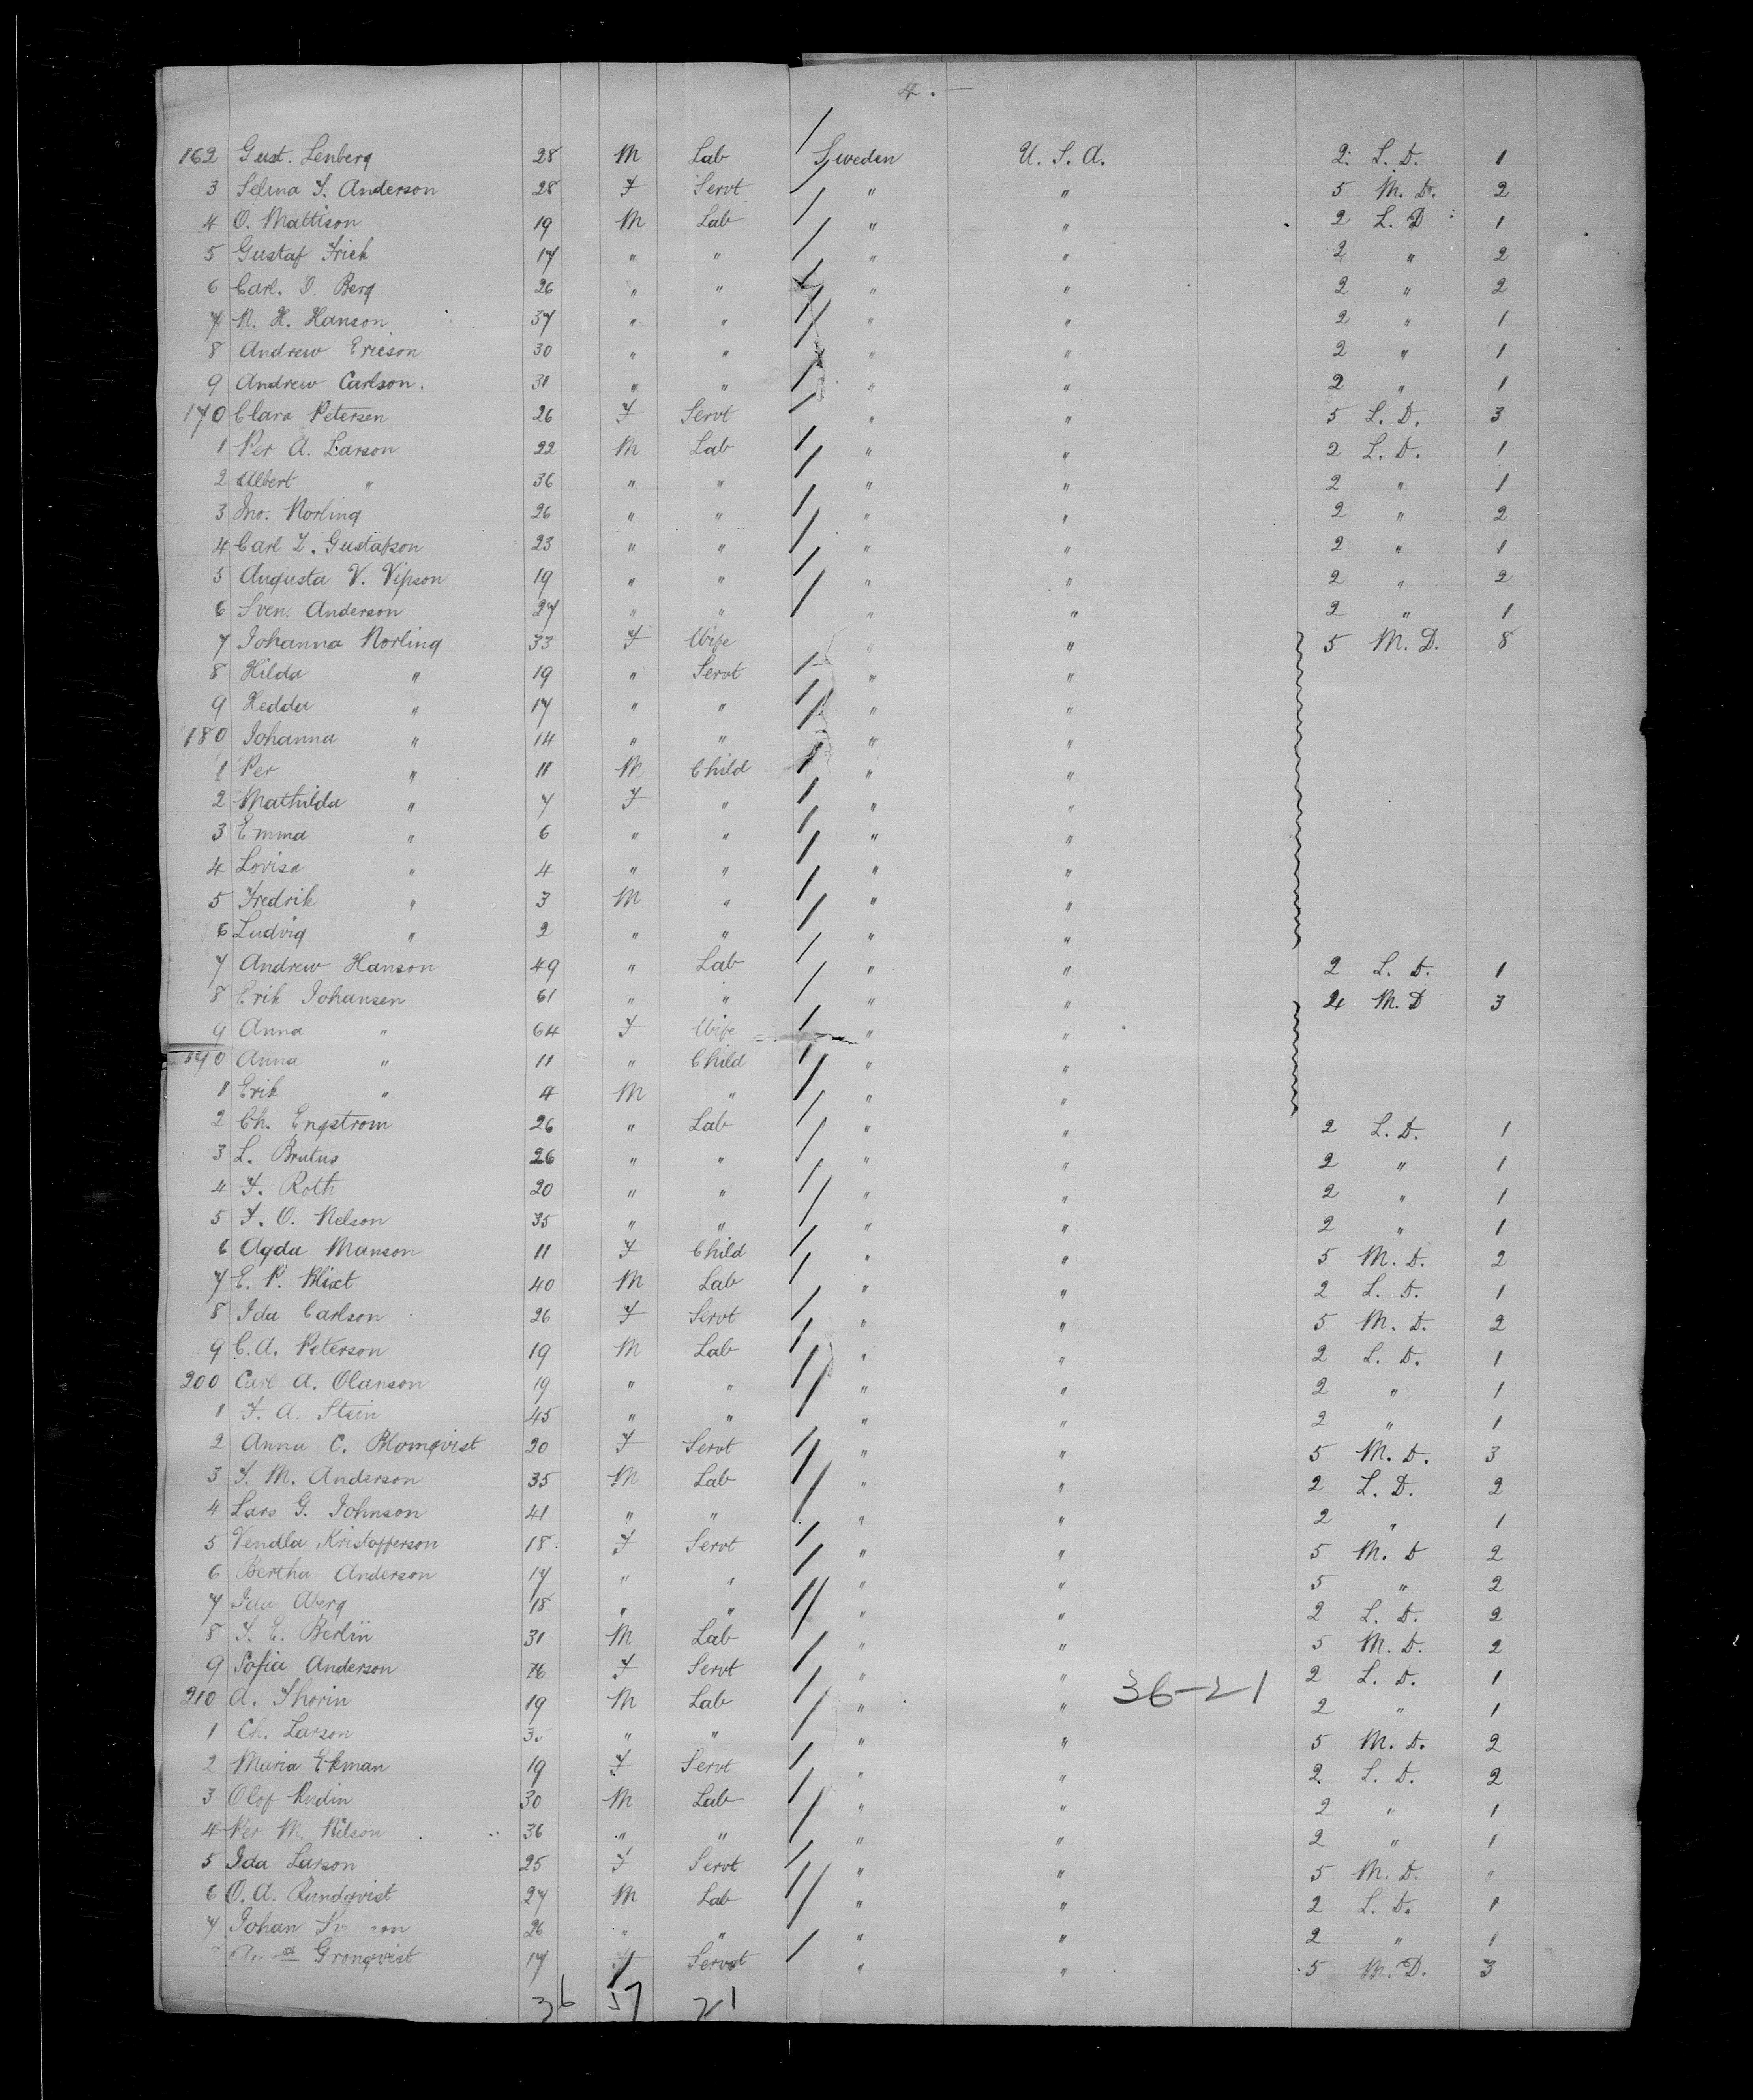 4. —
162 Gust. Lenberg 28 M Lab Sweden U. S. A. 2 L. D. 1
3 Selma S. Anderson 28 F Servt " " 5 M. D. 2
4 O. Mattison 19 M Lab " " 2 L. D 1
5 Gustaf Frick 17 " " " " 2 " 2
6 Carl. O. Berg 26 " " " " 2 " 2
7 N. H. Hanson 37 " " " " 2 " 1
8 Andrew Ericson 30 " " " " 2 " 1
9 Andrew Carlson. 31 " " " " 2 " 1
170 Clara Petersen 26 F Servt " " 5 L. D. 3
1 Per A. Larson 22 M Lab " " 2 L. D. 1
2 Albert " 36 " " " " 2 " 1
3 Jno. Norling 26 " " " " 2 " 2
4 Carl Z. Gustafson 23 " " " " 2 " 1
5 Augusta V. 19 " " " " 2 " 2
6 Sven. Anderson 27 " " " " 2 " 1
7 Johanna Norling 33 F Wife " " 5 M. D. 8
8 Hilda " 19 " Servt " "
9 Hedda " 17 " " " "
180 Johanna " 14 " " " "
1 Per " 11 M Child " "
2 Mathilda " 7 F " " "
3 Emma " 6 " " " "
4 Lovisa " 4 " " " "
5 Fredrik " 3 M " " "
6 Ludvig " 2 " " " "
7 Andrew Hanson 49 " Lab " " 2 L. D. 1
8 Erik Johansen 61 " " " " 4 M. D 3
9 Anna " 64 F Wife " "
190 Anna " 11 " Child " "
1 Erik " 4 M " " "
2 Ch. Engstrom 26 " Lab " " 2 L. D. 1
3 L. Brutus 26 " " " " 2 " 1
4 F. Roth 20 " " " " 2 " 1
5 F. O. Nelson 35 " " " " 2 " 1
6 Agda Munson 11 F Child " " 5 M. D. 2
7 E. P. Blixt 40 M Lab " " 2 L. D. 1
8 Ida Carlson 26 F Servt " " 5 M. D. 2
9 C. A. Peterson 19 M Lab " " 2 L. D. 1
200 Carl A. Olanson 19 " " " " 2 " 1
1 F. A. Stein 45 " " " " 2 " 1
2 Anna C. Blomqvist 20 F Servt " " 5 M. D. 3
3 S. M. Anderson 35 M Lab " " 2 L. D. 2
4 Lars G. Johnson 41 " " " " 2 " 1
5 Vendla Kristofferson 18 F Servt " " 5 M. D 2
6 Bertha Anderson 17 " " " " 5 " 2
7 Ida Aberg 18 " " " " 2 L. D. 2
8 S. E. Berlin 31 M Lab " " 5 M. D. 2
9 Sofia Anderson 16 F Servt " " 2 L. D. 1
36-21
210 A. Thorin 19 M Lab " " 2 " 1
1 Ch. Larson " " " " 5 M. D. 2
2 Maria Ekman 19 F Servt " " 2 L. D. 2
3 Olof Rudin 30 M Lab " " 2 " 1
4 Per M. Nilson 36 " " " " 2 " 1
5 Ida Larson 25 F Servt " " 5 M. D. "
6 O. A. Rundqvist 27 M Lab " " 2 L. D. 1
7 Johan 26 " " " " 2 " 1
Gronqvist 17 F Servt " " 5 M. D. 3
36 57 21